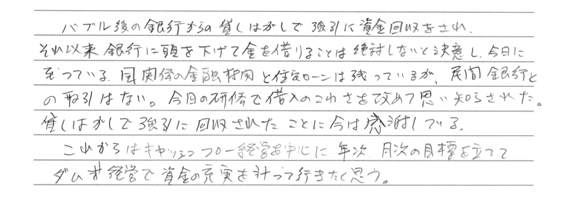 バブル後の銀行からの貸しはがしで強引に資金回収をされ、
それ以来銀行に頭を下げて金を借りることは絶対しないと決意し、今日に
至っている。国関係の金融機関と住宅ローンは残っているが、民間銀行と
の取引はない。今日の研修で借入のこわさを改めて思い知らされた。
貸しはがしで強引に回収されたことに今は感謝している。
これからはキャッシュフロー経営を中心に年次 月次の目標を立てて
ダム式経営で資金の充実を計って行きたく思う。